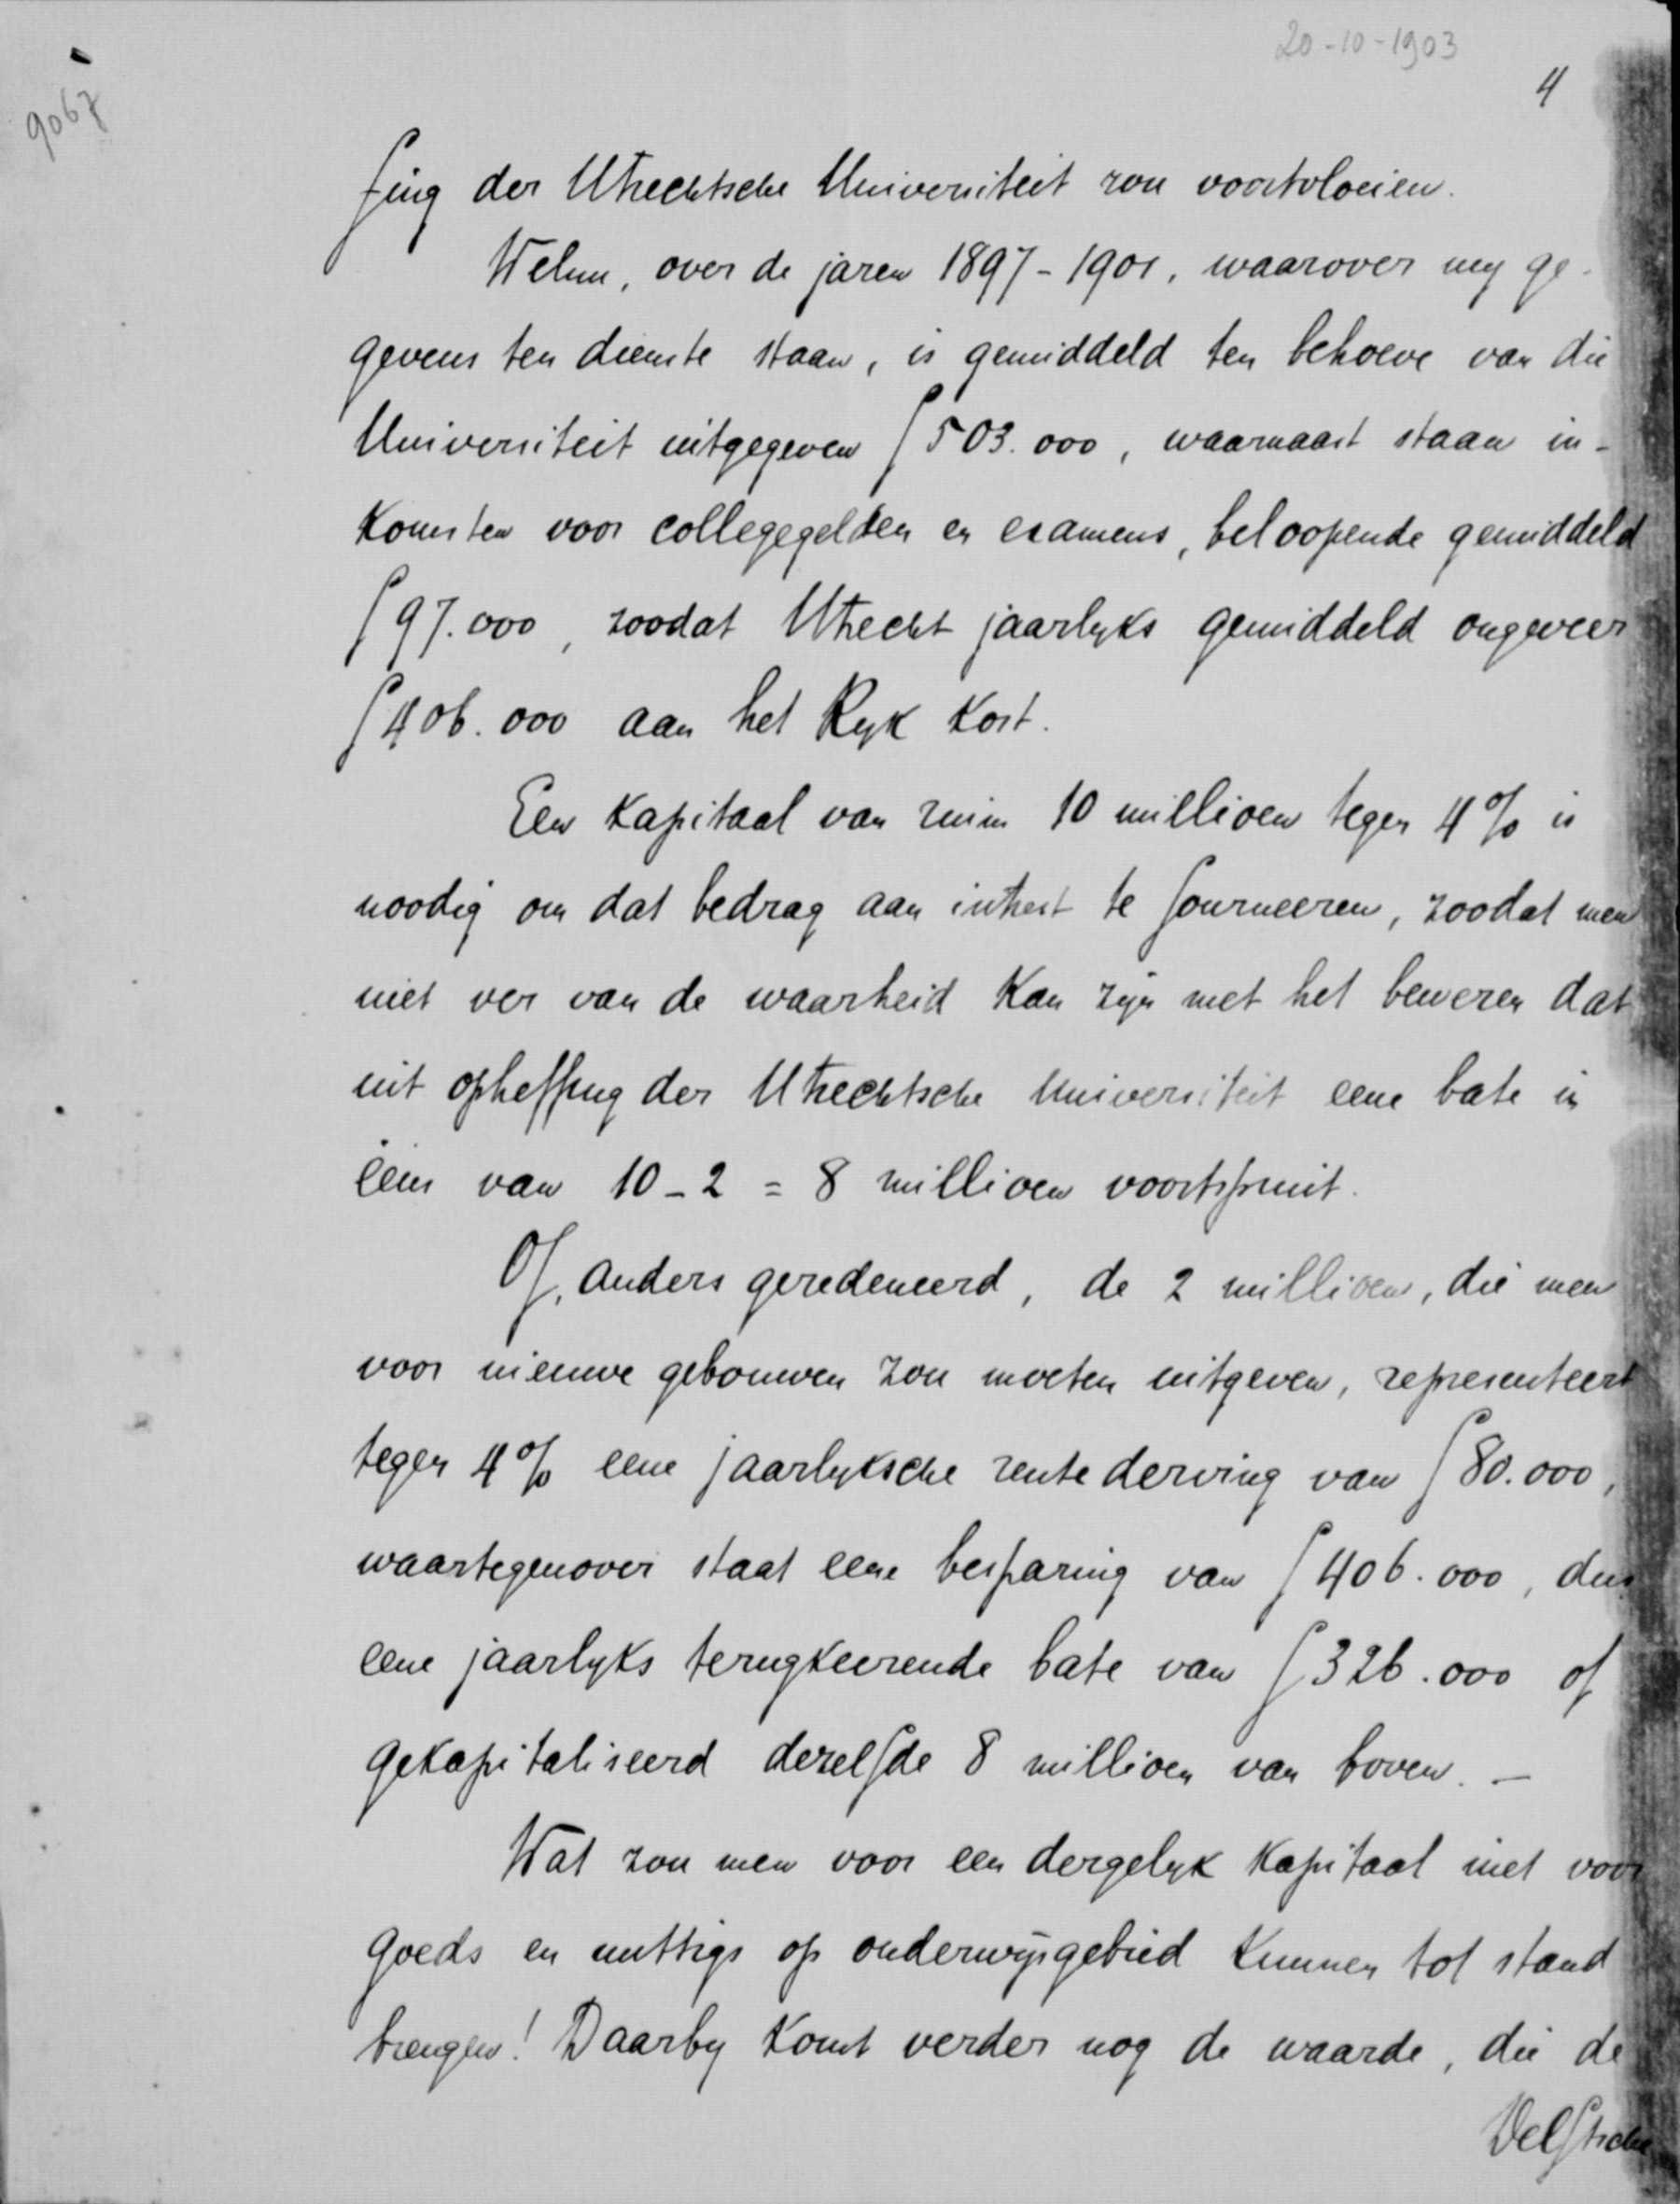 20-10-1903
4
9067
fing der Utrechtsche Universiteit zou voortvloeien.
Welnu, over de jaren 1897-1901, waarover my ge-
gevens ten dienste staan, is gemiddeld ten behoeve van die
Universiteit uitgegeven ƒ 503.000, waarnaast staan in-
komsten voor collegegelden en examens, beloopende gemiddeld
ƒ 97.000, zoodat Utrecht jaarlyks gemiddeld ongeveer
ƒ 406.000 aan het Ryk kost.
Een kapitaal van ruim 10 millioen tegen 4% is
noodig om dat bedrag aan intrest te fourneeren, zoodat men
niet ver van de waarheid kan zyn met het beweren dat
uit opheffing der Utrechtsche Universiteit eene bate in
ééns van 10-2 = 8 millioen voortspruit.
Of, anders geredeneerd, de 2 millioen, die men
voor nieuwe gebouwen zou moeten uitgeven, representeert
tegen 4% eene jaarlyksche rentederving van ƒ 80.000,
waartegenover staat eene besparing van ƒ 406.000, dus
eene jaarlyks terugkeerende bate van ƒ 326.000 of
gekapitaliseerd dezelfde 8 millioen van boven. —
Wat zou men voor een dergelyk kapitaal niet voor
goeds en nuttigs op onderwijsgebied kunnen tot stand
brengen! Daarby komt verder nog de waarde, die de
Delftsche